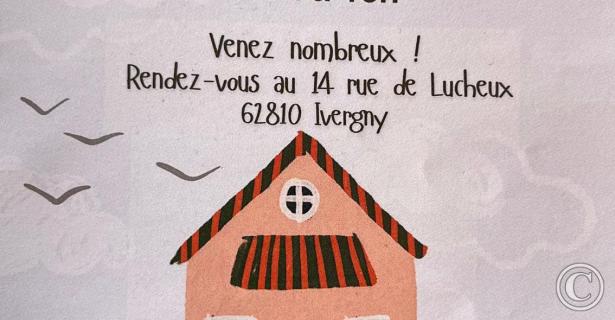 Venez nombreux !
Rendez-vous au 14 rue de Lucheux
62810 Ivergny
©